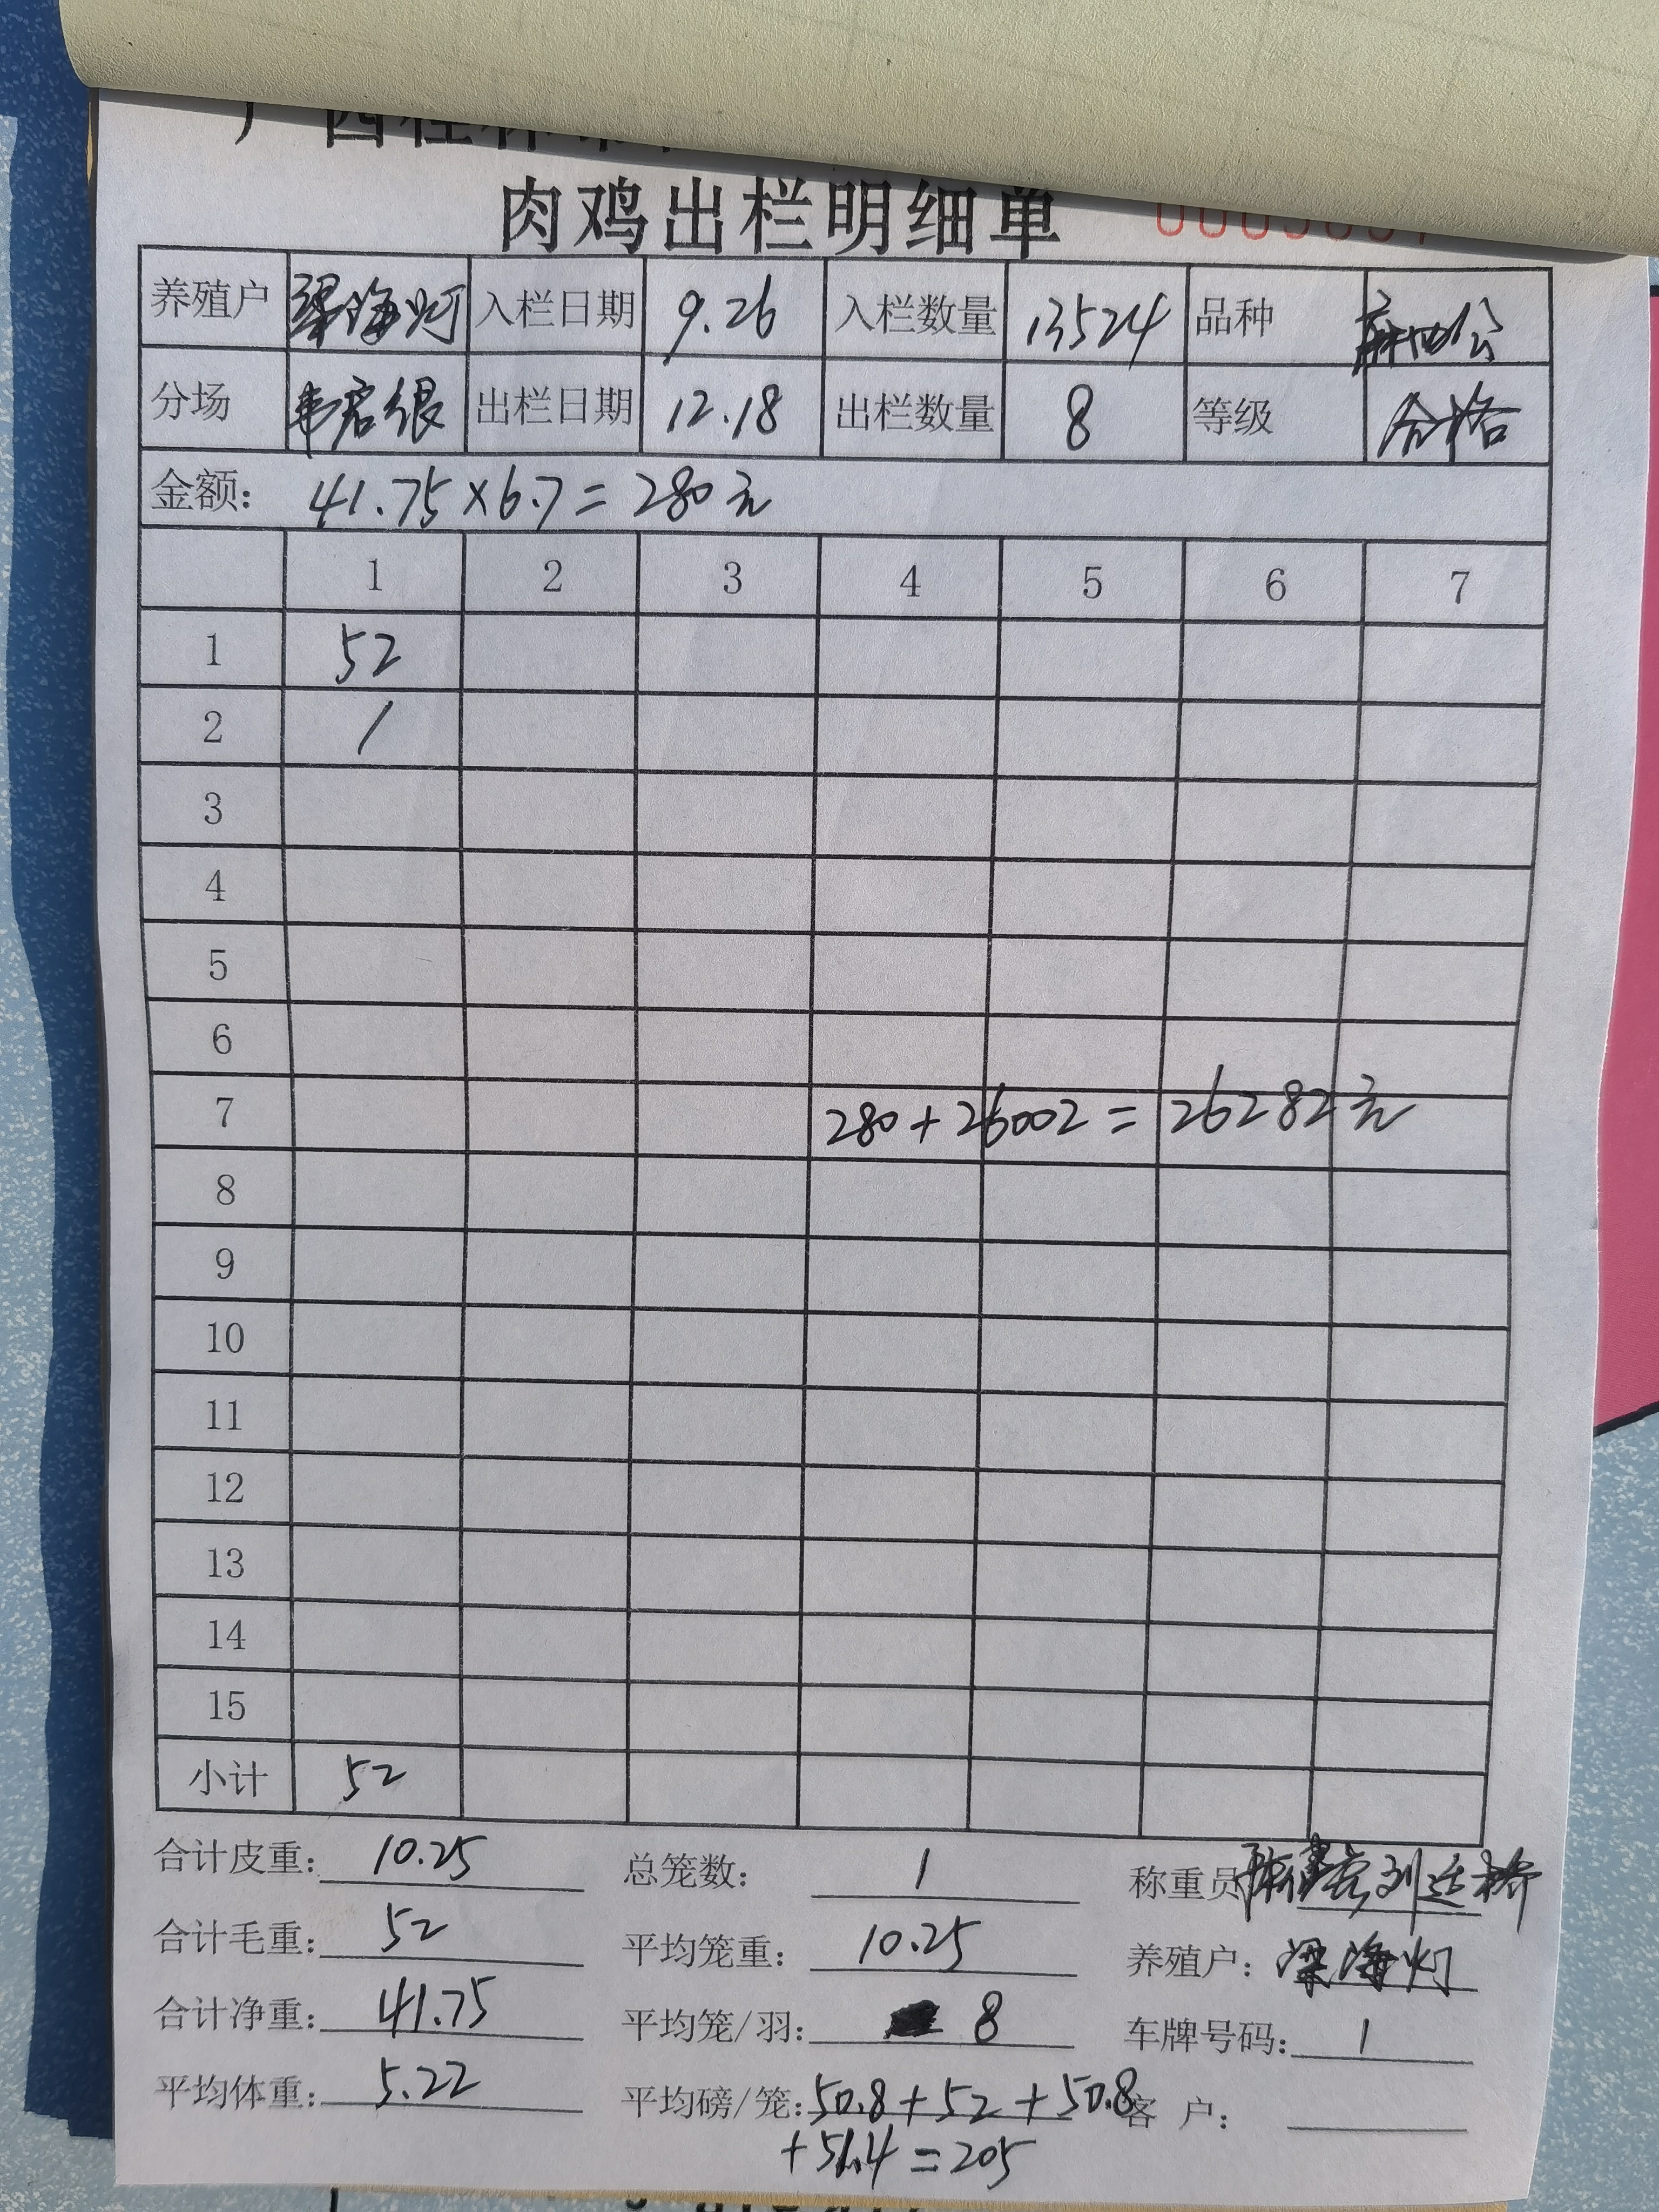 肉鸡出栏明细单
养殖户 梁海灯 入栏日期 9.26 入栏数量 13524 品种
分场 韦启银 出栏日期 12.18 出栏数量 8 等级 合格
金额： 41.75×6.7=280元
1 2 3 4 5 6 7
1 52
2 /
3
4
5
6
7 280+26002=26282元
8
9
10
11
12
13
14
15
小计 52
合计皮重： 10.25 总笼数： 1 称重员 刘廷桥
合计毛重： 52 平均笼重： 10.25 养殖户： 梁海灯
合计净重： 41.75 平均笼/羽： 8 车牌号码： 1
平均体重： 5.22 平均磅/笼： 50.8+52+50.8 客 户：
+51.4=205